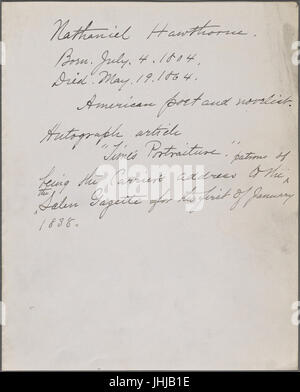 Nathaniel Hawthorne.
Born. July. 4. 1804.
Died. May. 19. 1864.
American poet and novelist.
Autograph article
"Time's Portraiture" patrons of
being the Carrier's address to the
the Salem Gazette for the first of January
1838.
alamy
Image ID: JHJB1E
www.alamy.com